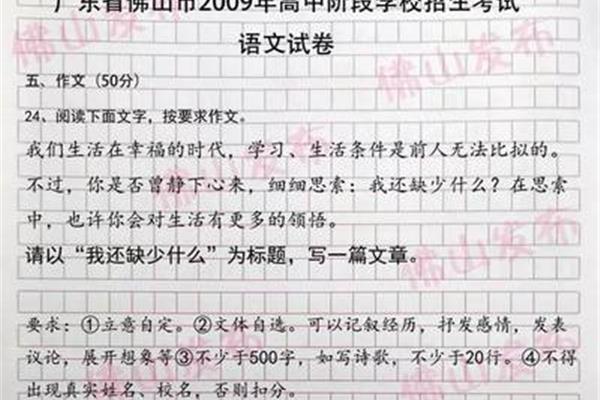 广东省佛山市2009年高中阶段学校招生考试
语文试卷
五、作文（50分）
24、阅读下面文字，按要求作文。
我们生活在幸福的时代，学习、生活条件是前人无法比拟的。
不过，你是否曾静下心来，细细思索：我还缺少什么？在思索
中，也许你会对生活有更多的领悟。
请以“我还缺少什么”为标题，写一篇文章。
要求：①立意自定。②文体自选。可以记叙经历，抒发感情，发表
议论，展开想象等③不少于500字，如写诗歌，不少于20行。④不得
出现真实姓名、校名，否则扣分。
佛山发布
佛山发布
佛山发布
佛山发布
佛山发布
佛山发布